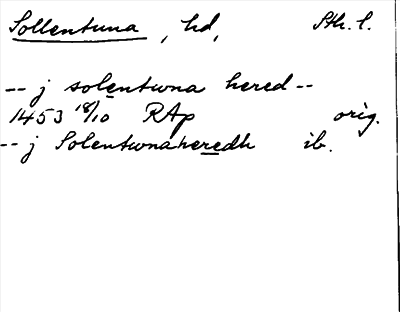 Sollentuna, hd, Sth. l.
-- j solentuna hered --
1453 18/10 RAp orig.
-- j Solentunaheredh ib.